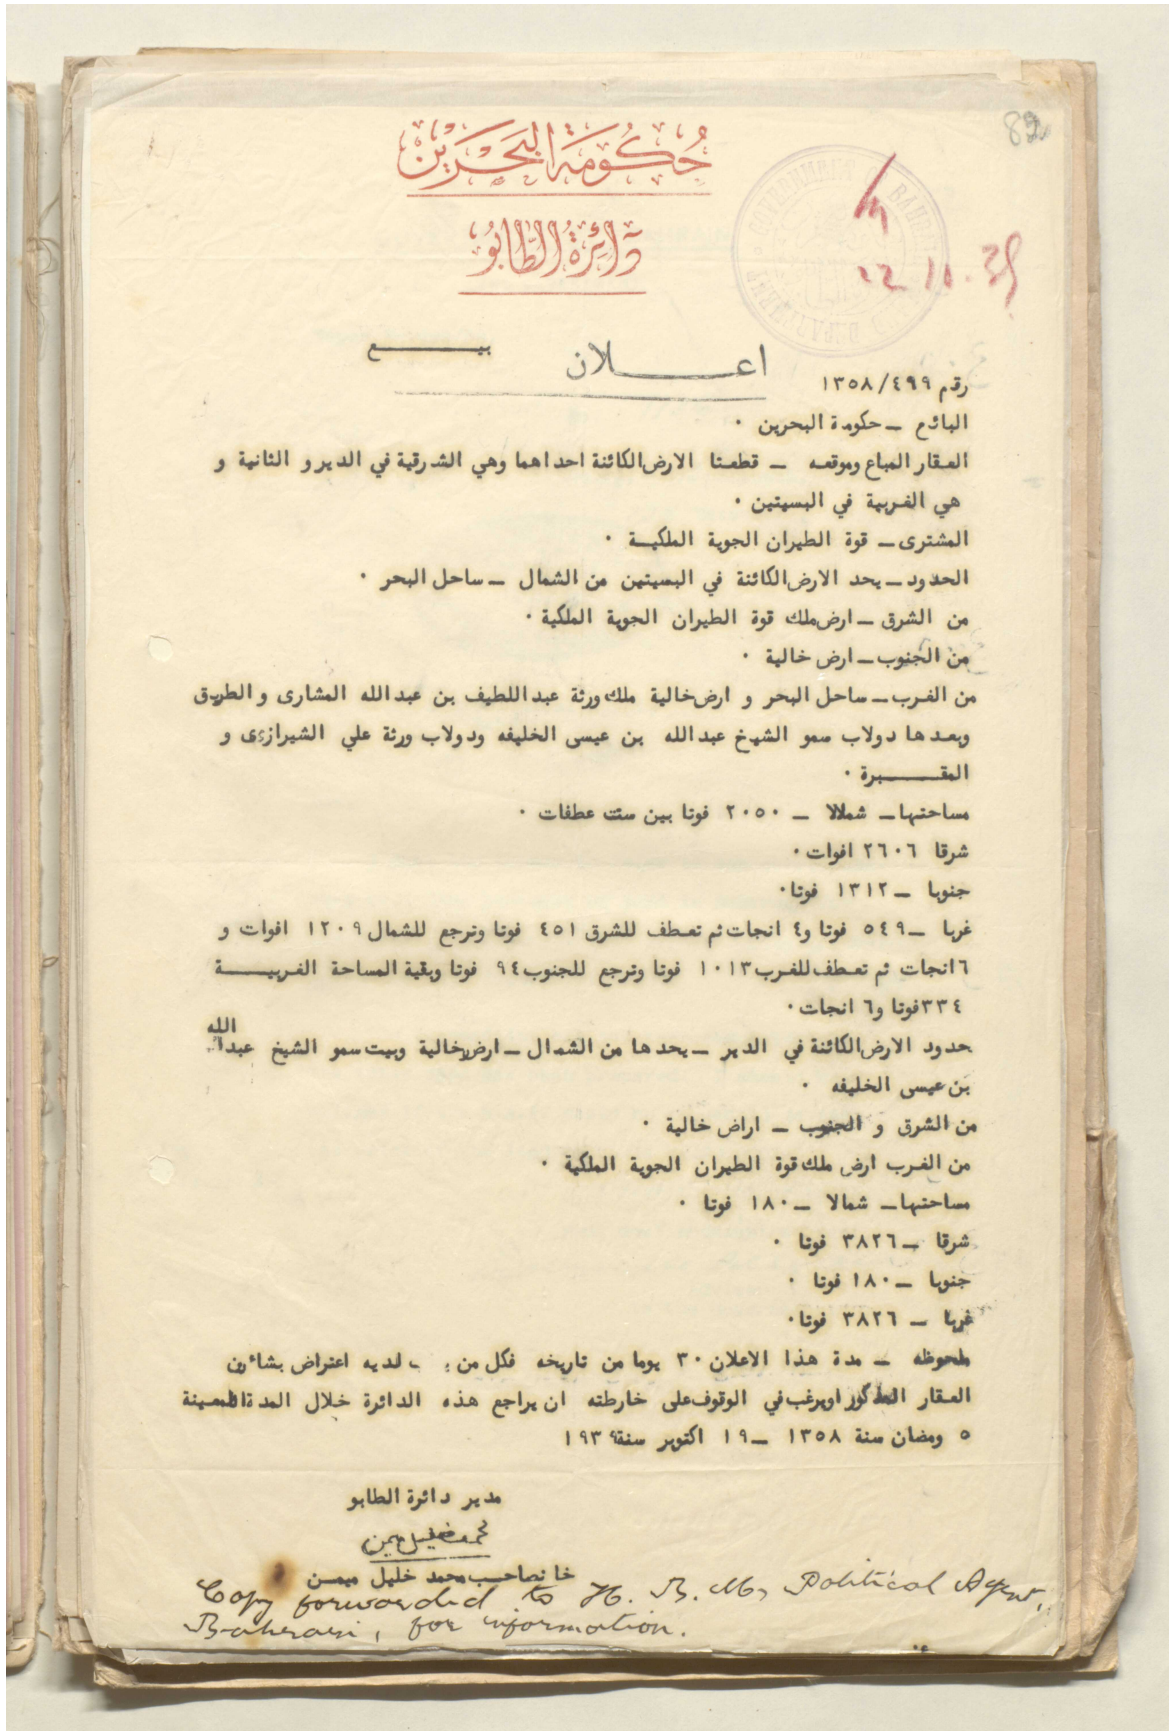 82
حُكُومَة البَحَرَين
دَائِرَةُ الطَّابُو
GOVERNMENT BAHR
DEPARTMENT
22.10.39
اعــــلان بيــــع
رقم ١٣٥٨/٤٩٩
البائع ــ حكومة البحرين ٠
العقار المباع وموقعه ــ قطعتا الارض الكائنة احداهما وهي الشرقية في الدير و الثانية و
هي الغربية في البسيتين ٠
المشترى ــ قوة الطيران الجوية الملكيــة ٠
الحدود ــ يحد الارض الكائنة في البسيتين من الشمال ــ ساحل البحر ٠
من الشرق ــ ارض ملك قوة الطيران الجوية الملكية ٠
من الجنوب ــ ارض خالية ٠
من الغرب ــ ساحل البحر و ارض خالية ملك ورثة عبد اللطيف بن عبد الله المشارى و الطريق
وبعدها دولاب سمو الشيخ عبد الله بن عيسى الخليفه ودولاب ورثة علي الشيرازى و
المقــــبرة ٠
مساحتها ــ شمالا ــ ٢٠٥٠ فوتا بين ست عطفات ٠
شرقا ٢٦٠٦ افوات ٠
جنوبا ــ ١٣١٢ فوتا ٠
غربا ــ ٥٤٩ فوتا و٤ انجات ثم تعطف للشرق ٤٥١ فوتا وترجع للشمال ١٢٠٩ افوات و
٦ انجات ثم تعطف للغرب ١٠١٣ فوتا وترجع للجنوب ٩٤ فوتا وبقية المساحة الغربيــــة
٣٣٤ فوتا و٦ انجات ٠
حدود الارض الكائنة في الدير ــ يحدها من الشمال ــ ارض خالية وبيت سمو الشيخ عبد الله
بن عيسى الخليفه ٠
من الشرق و الجنوب ــ اراض خالية ٠
من الغرب ارض ملك قوة الطيران الجوية الملكية ٠
مساحتها ــ شمالا ــ ١٨٠ فوتا ٠
شرقا ــ ٣٨٢٦ فوتا ٠
جنوبا ــ ١٨٠ فوتا ٠
غربا ــ ٣٨٢٦ فوتا ٠
ملحوظه ــ مدة هذا الاعلان ٣٠ يوما من تاريخه فكل من لديه اعتراض بشائن
العقار المذكور اويرغب في الوقوف على خارطته ان يراجع هذه الدائرة خلال المدة المعينة
٥ ومضان سنة ١٣٥٨ ــ ١٩ اكتوبر سنة ١٩٣٩
مدير دائرة الطابو
محمد خليل ميمن
خانصاحب محمد خليل ميمن
Copy forwarded to H. B. M's Political Agent,
Bahrain, for information.